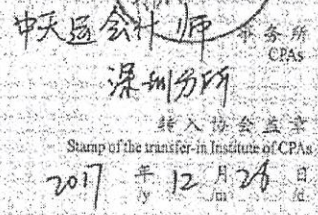 中天运会计师 事务所
CPAs
深圳分所
转入协会盖章
Stamp of the transfer-in Institute of CPAs
2017 年 12 月 26 日
/y /m /d